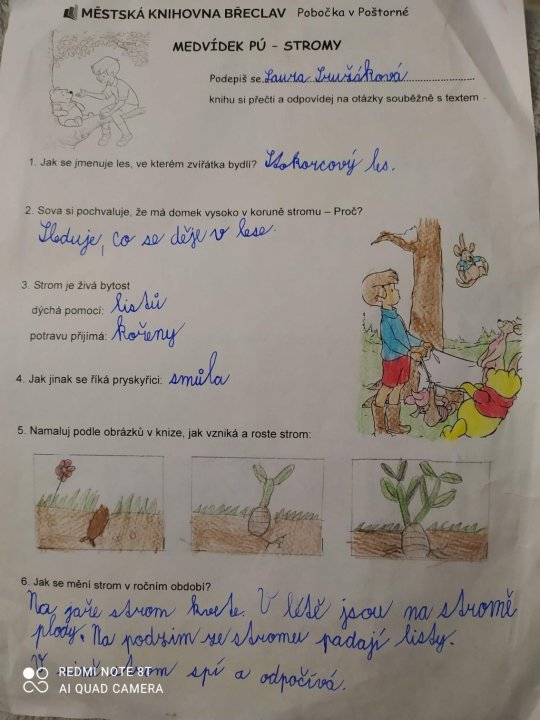 MĚSTSKÁ KNIHOVNA BŘECLAV Pobočka v Poštorné
MEDVÍDEK PÚ - STROMY
Podepiš se Laura Svužáková
knihu si přečti a odpovídej na otázky souběžně s textem
1. Jak se jmenuje les, ve kterém zvířátka bydlí? Stokorcový les.
2. Sova si pochvaluje, že má domek vysoko v koruně stromu – Proč?
Sleduje, co se děje v lese.
3. Strom je živá bytost
dýchá pomocí: listů
potravu přijímá: kořeny
4. Jak jinak se říká pryskyřici: smůla
5. Namaluj podle obrázků v knize, jak vzniká a roste strom:
6. Jak se mění strom v ročním období?
Na jaře strom kvete. V létě jsou na stromě
plody. Na podzim ze stromu padají listy.
V zimě strom spí a odpočívá.
REDMI NOTE 8T
AI QUAD CAMERA